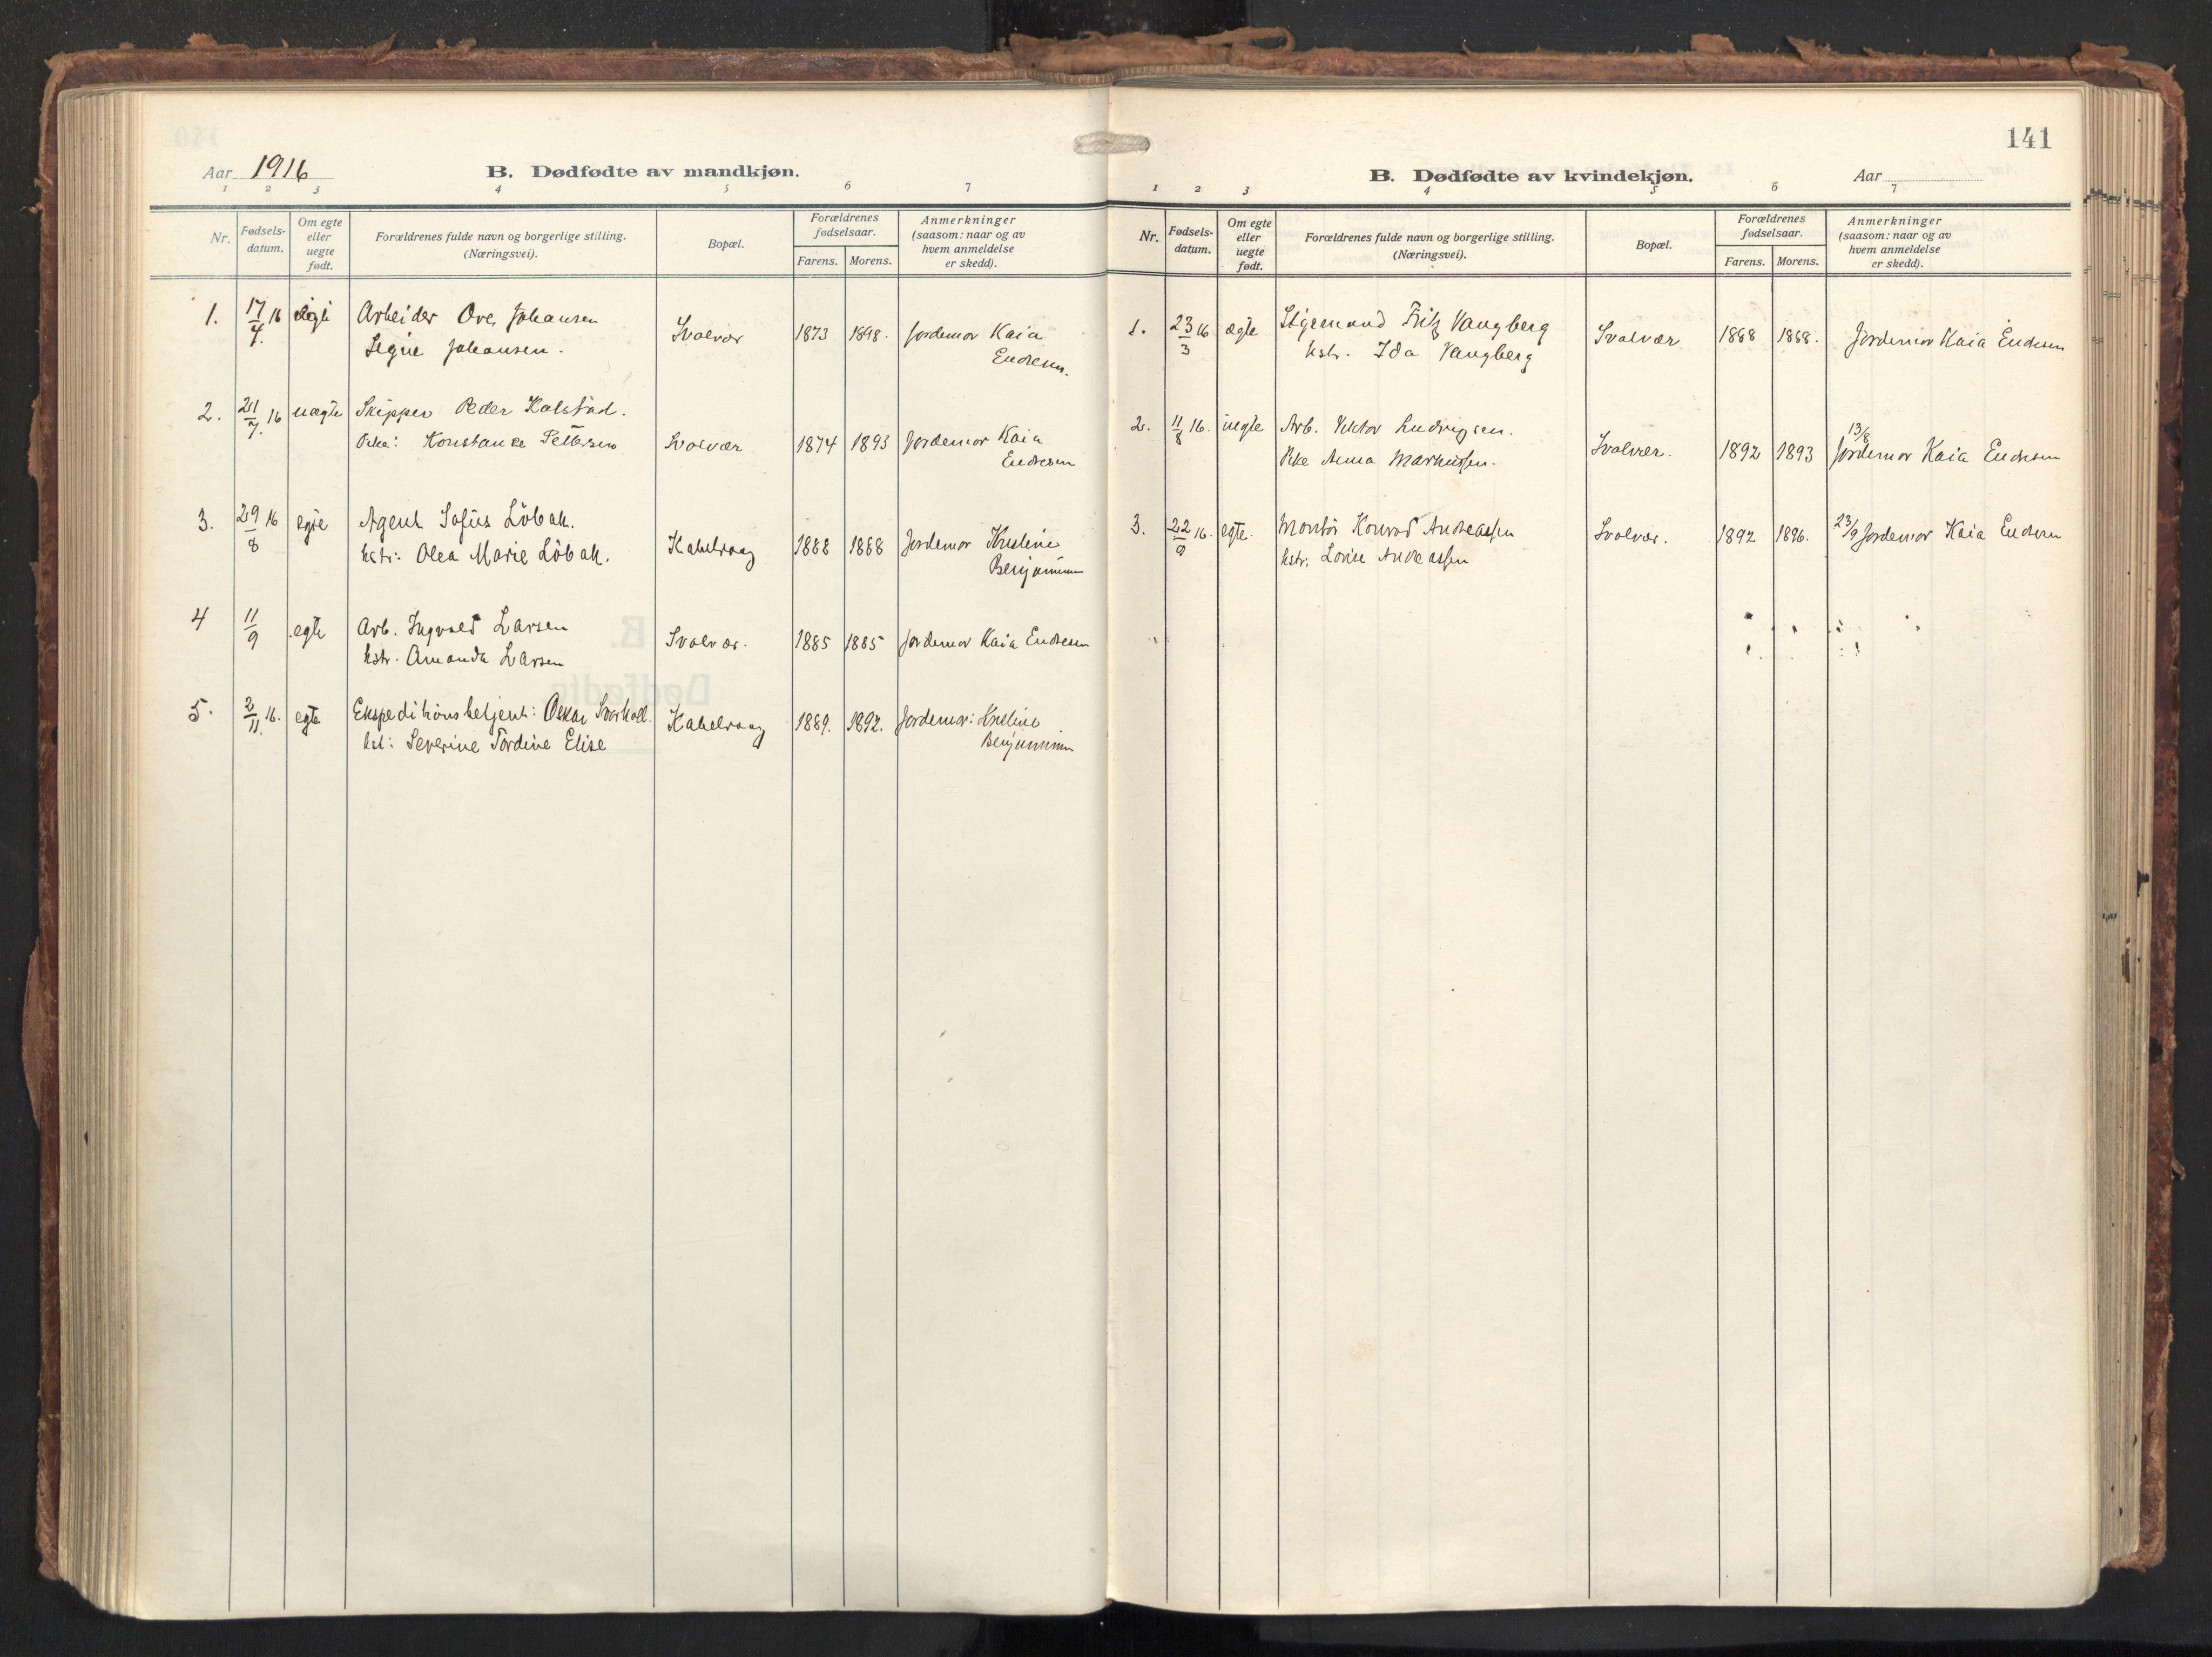 Aar 1916
B. Dødfødte av mandkjøn.
1 2 3 4 5 6 7
Nr.
Fødsels-
datum.
Om egte
eller
uegte
født.
Forældrenes fulde navn og borgerlige stilling.
(Næringsvei).
Bopæl.
Forældrenes
fødselsaar.
Farens. Morens.
Anmerkninger
(saasom: naar og av
hvem anmeldelse
er skedd).
1. 17/4 16 Arbeider Ove Johansen
Signe Johansen. Svolvær 1873 1898. Jordemor Kaia
Endresen.
2. 7. 16 uægte Skipper Peder Kalstad.
Pike: Konstanse Pettersen Svolvær 1874 1893 Jordemor Kaia
Endresen
3. 29/8 16 egte Agent Sofus Löbak.
hstr: Olea Marie Löbak. Kabelvaag 1888 1888 Jordemor Kristine
Benjaminsen
4 11/9 egte Arb. Ingvald Larsen
hstr. Amanda Larsen Svolvær. 1885 1885 Jordemor Kaia Endresen
5. 2/11 16. egte Ekspeditionsbetjent: Oskar
hst: Severine Tordine Elise Kabelvaag 1889. 1892. Jordemor: Kristine
Benjaminsen
141
B. Dødfødte av kvindekjøn.
Aar
1 2 3 4 5 6 7
Nr.
Fødsels-
datum.
Om egte
eller
uegte
født.
Forældrenes fulde navn og borgerlige stilling.
(Næringsvei).
Bopæl.
Forældrenes
fødselsaar.
Farens. Morens.
Anmerkninger
(saasom: naar og av
hvem anmeldelse
er skedd).
1. 23/3 16 ægte Styrmand Fritz Vangberg
hstr. Ida Vangberg Svolvær 1868 1868. Jordemor Kaia Endresen
2. 11/8 16. uegte Arb. Viktor Ludvigsen.
Pike Anna Markussen. Svolvær. 1892 1893 13/8 Jordemor Kaia Endresen
3. 22/9 16. egte. Montør Konrad Andreassen
hstr. Lovise Andreassen Svolvær. 1892 1896. 23/9 Jordemor Kaia Endresen